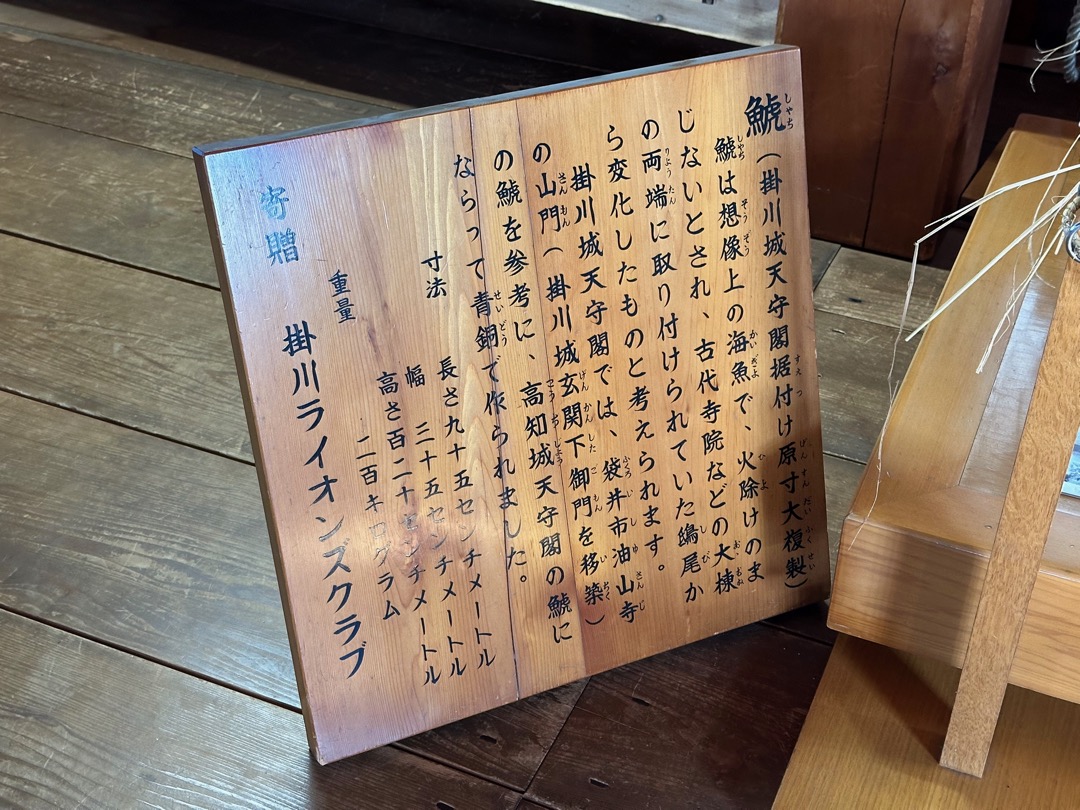 鯱（掛川城天守閣据付け原寸大複製）
鯱は想像上の海魚で、火除けのま
じないとされ、古代寺院などの大棟
の両端に取り付けられていた鴟尾か
ら変化したものと考えられます。
掛川城天守閣では、袋井市油山寺
の山門（掛川城玄関下御門を移築）
の鯱を参考に、高知城天守閣の鯱に
ならって青銅で作られました。
寸法 長さ九十五センチメートル
幅 三十五センチメートル
高さ百二十センチメートル
重量 二百キログラム
寄贈 掛川ライオンズクラブ